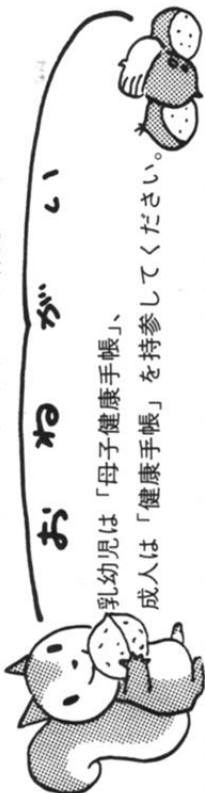 おねがい
乳幼児は「母子健康手帳」、
成人は「健康手帳」を持参してください。